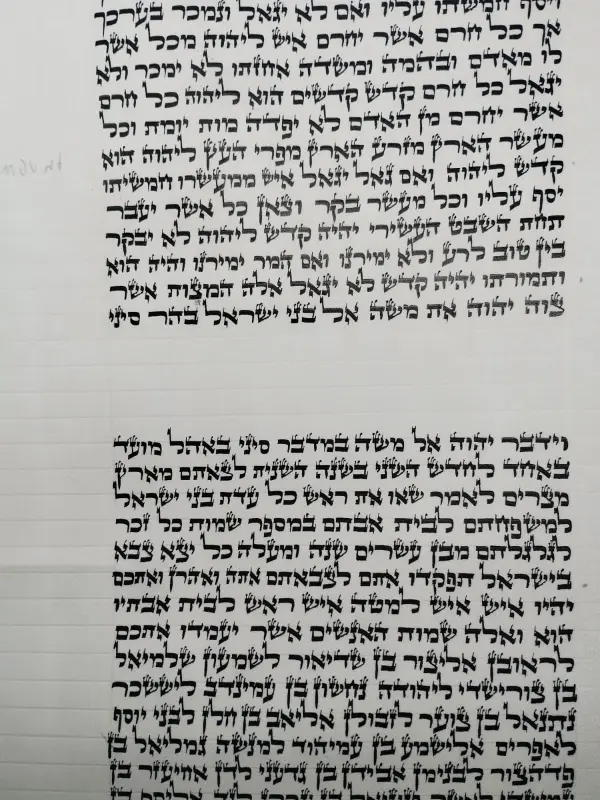 ויסף חמשתו עליו ואם לא יגאל ונמכר בערכך
אך כל חרם אשר יחרם איש ליהוה מכל אשר
לו מאדם ובהמה ומשדה אחזתו לא ימכר ולא
יגאל כל חרם קדש קדשים הוא ליהוה כל חרם
אשר יחרם מן האדם לא יפדה מות יומת וכל
מעשר הארץ מזרע הארץ מפרי העץ ליהוה הוא
קדש ליהוה ואם גאל יגאל איש ממעשרו חמשיתו
יסף עליו וכל מעשר בקר וצאן כל אשר יעבר
תחת השבט העשירי יהיה קדש ליהוה לא יבקר
בין טוב לרע ולא ימירנו ואם המר ימירנו והיה הוא
ותמורתו יהיה קדש לא יגאל אלה המצות אשר
צוה יהוה את משה אל בני ישראל בהר סיני
וידבר יהוה אל משה במדבר סיני באהל מועד
באחד לחדש השני בשנה השנית לצאתם מארץ
מצרים לאמר שאו את ראש כל עדת בני ישראל
למשפחתם לבית אבתם במספר שמות כל זכר
לגלגלתם מבן עשרים שנה ומעלה כל יצא צבא
בישראל תפקדו אתם לצבאתם אתה ואהרן ואתכם
יהיו איש איש למטה איש ראש לבית אבתיו
הוא ואלה שמות האנשים אשר יעמדו אתכם
לראובן אליצור בן שדיאור לשמעון שלמיאל
בן צורישדי ליהודה נחשון בן עמינדב ליששכר
נתנאל בן צוער לזבולן אליאב בן חלן לבני יוסף
לאפרים אלישמע בן עמיהוד למנשה גמליאל בן
פדהצור לבנימן אבידן בן גדעני לדן אחיעזר בן